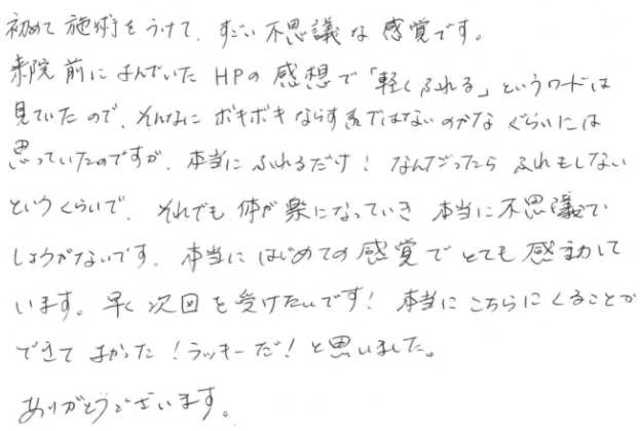 初めて施術をうけて、すごい不思議な感覚です。
来院前によんでいたHPの感想で「軽くふれる」というワードは
見ていたので、そんなにボキボキならす系ではないのかなぐらいには
思っていたのですが、本当にふれるだけ！なんだったらふれもしない
というくらいで、それでも体が楽になっていき本当に不思議で
しょうがないです。本当にはじめての感覚でとても感動して
います。早く次回を受けたいです！本当にこちらにくることが
できてよかった！ラッキーだ！と思いました。
ありがとうございます。